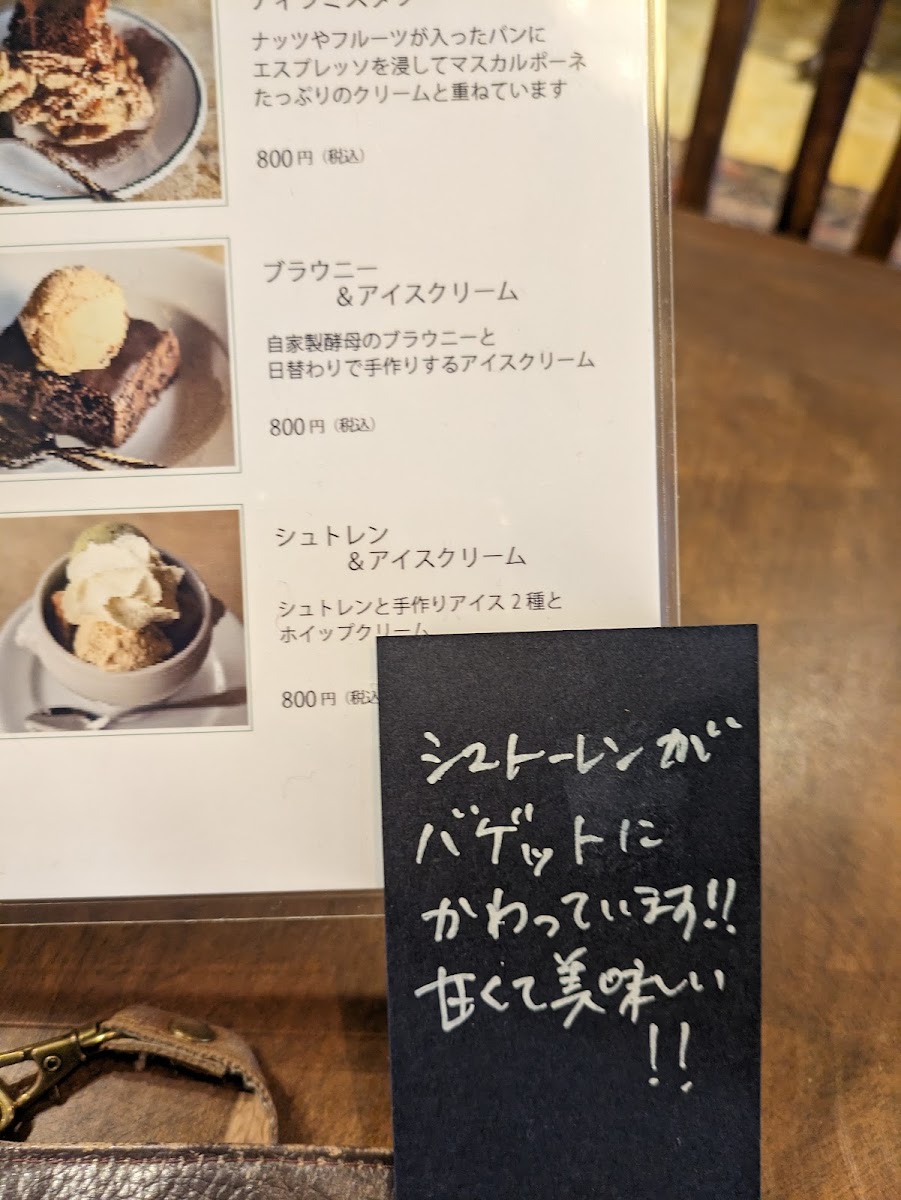 ナッツやフルーツが入ったパンに
エスプレッソを浸してマスカルポーネ
たっぷりのクリームと重ねています
800円（税込）
ブラウニー
＆アイスクリーム
自家製酵母のブラウニーと
日替わりで手作りするアイスクリーム
800円（税込）
シュトレン
＆アイスクリーム
シュトレンと手作りアイス2種と
ホイップクリーム
800円（税込
シュトーレンが
バゲットに
かわっています!!
甘くて美味しい
!!